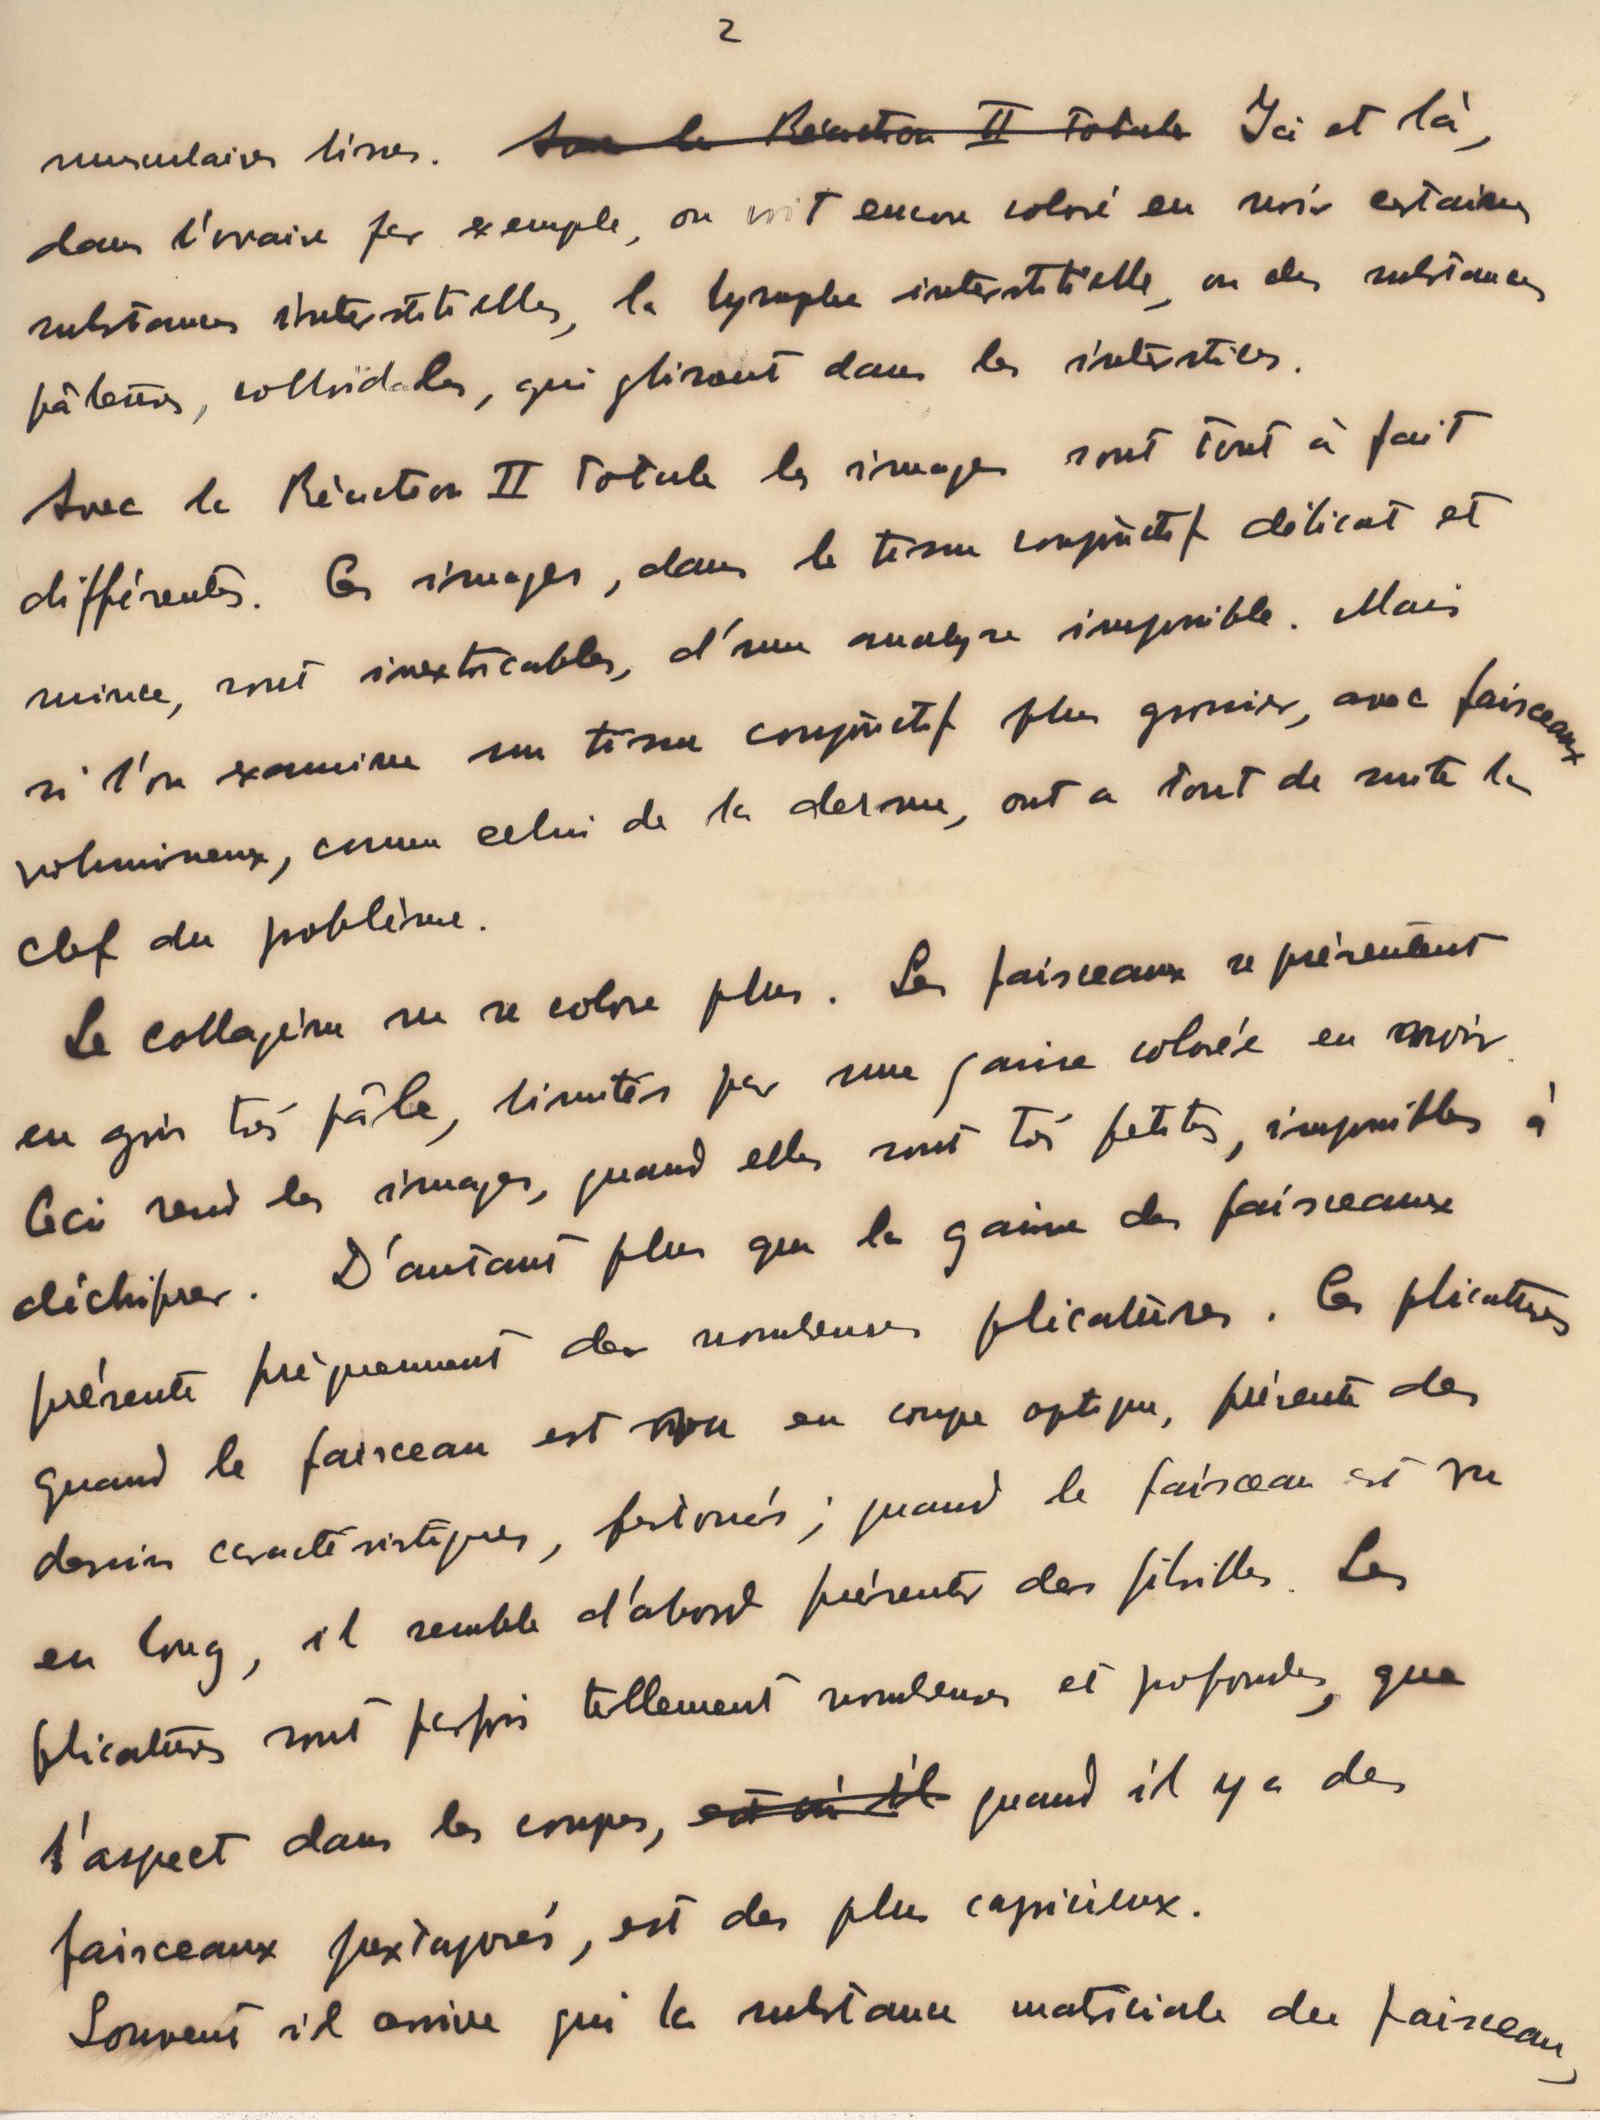 2
musculaires lisses. Avec la Réaction II Totale Ici et là,
dans l'ovaire par exemple, on voit encore coloré en noir certaines
substances interstitielles, la lymphe interstitielle, ou des substances
pâteuses, colloïdales, qui glissent dans les interstices.
Avec la Réaction II Totale les images sont tout à fait
différentes. Ces images, dans le tissu conjonctif délicat et
mince, sont inextricables, d'une analyse impossible. Mais
si l'on examine un tissu conjonctif plus grossier, avec faisceaux
volumineux, comme celui de la derme, ont a tout de suite la
clef du problème.
Le collagène ne se colore plus. Les faisceaux se présentent
en gris très pâle, limités par une gaine colorée en noir.
Ceci rend les images, quand elles sont très petites, impossibles à
déchifrer. D'autant plus que la gaine des faisceaux
présente fréquemment des nombreuses plicatures. Ces plicatures
quand le faisceau est vu en coupe optique, présente des
dessins caractéristiques, festonés; quand le faisceau est vu
en long, il semble d'abord présenter des fibrilles. Les
plicatures sont parfois tellement nombreuses et profondes, que
l'aspect dans les coupes, est si il quand il y a des
faisceaux juxtaposés, est des plus capricieux.
Souvent il arrive qui la substance matriciale du faisceau,